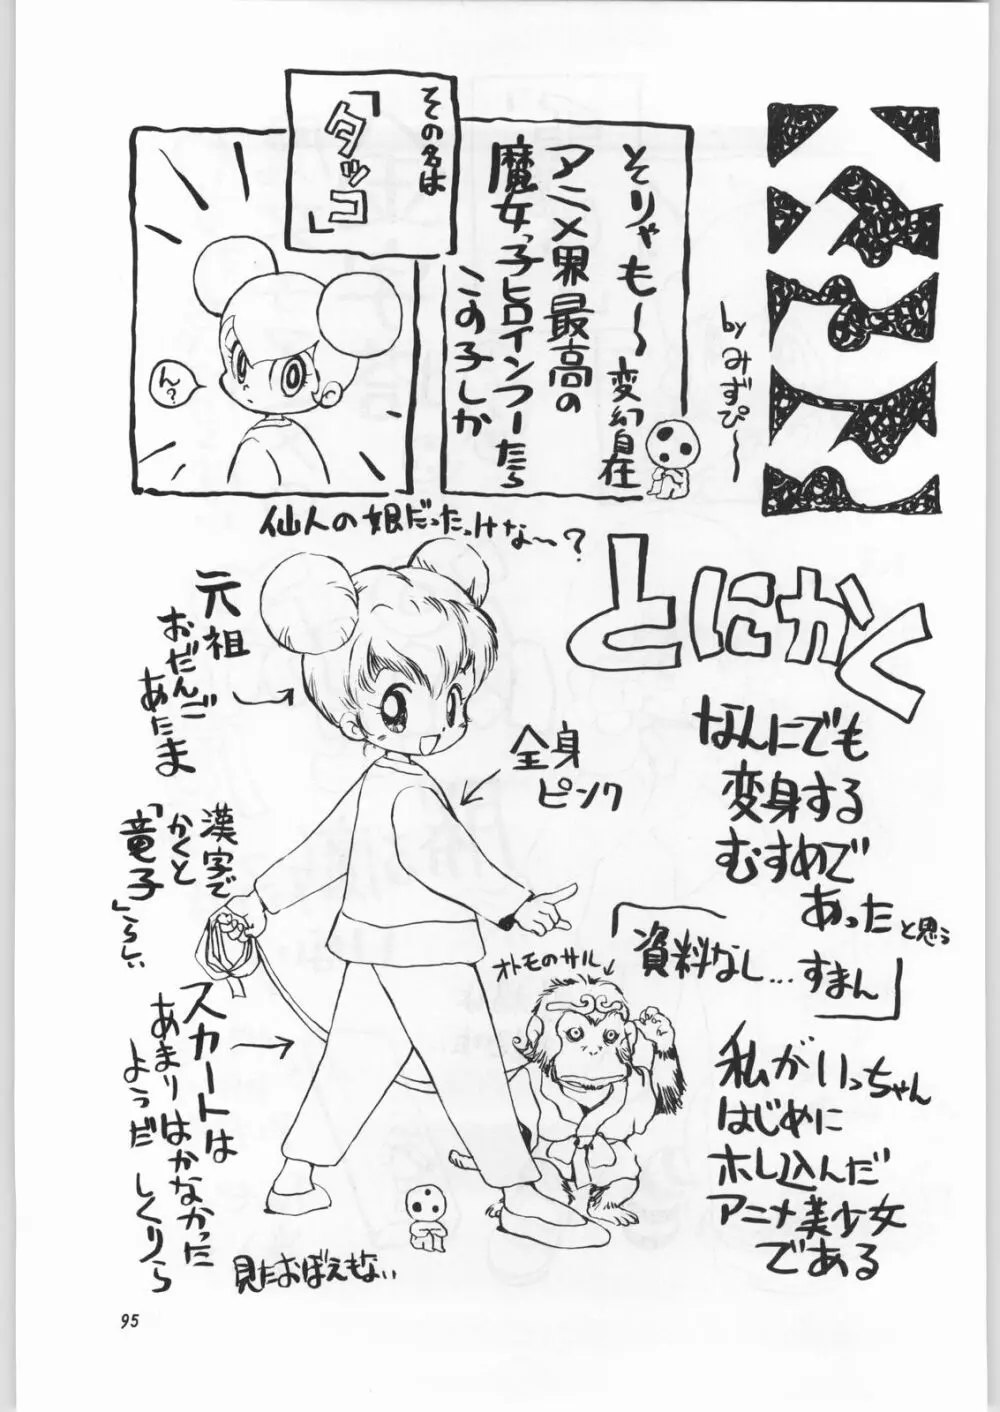 by みずぴ〜
そりゃも〜変幻自在
アニメ界最高の
魔女っ子ヒロインつーたら
この子しか
その名は
「タッコ」
ん?
仙人の娘だったっけな〜?
とにかく
なんにでも
変身する
むすめで
あったと思う
「資料なし…すまん」
私がいっちゃん
はじめに
ホレ込んだ
アニメ美少女
である
元祖
おだんご
あたま
全身
ピンク
漢字で
かくと
「竜子」らしい
オトモのサル
スカートは
あまりはかなかった
ようだ しくりら
見たおぼえもない
95